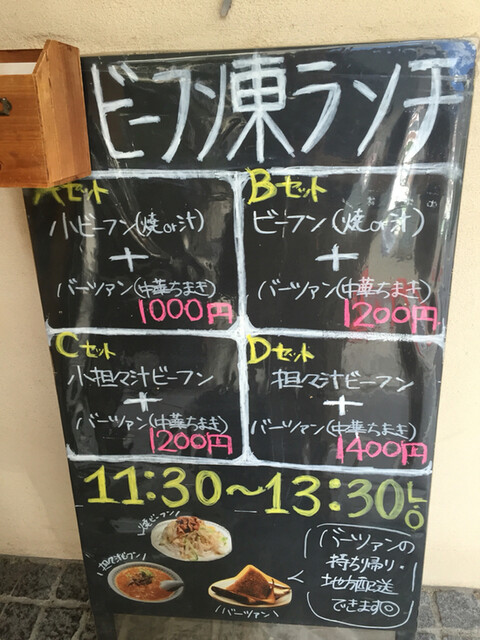 ビーフン東ランチ
Aセット
小ビーフン(焼or汁)
+
バーツァン(中華ちまき)
1000円
Bセット
ビーフン(焼or汁)
+
バーツァン(中華ちまき)
1200円
Cセット
小担々汁ビーフン
+
バーツァン(中華ちまき)
1200円
Dセット
担々汁ビーフン
+
バーツァン(中華ちまき)
1400円
11:30〜13:30 LO
焼ビーフン
担々汁ビーフン
バーツァン
バーツァンの
持ち帰り・
地方配送
できます